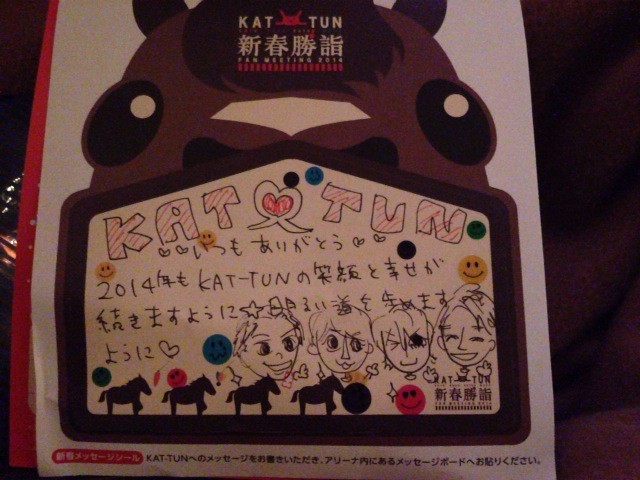 KAT-TUN
新春勝詣
FAN MEETING 2014
KAT♡TUN
♡♡いつもありがとう♡♡
2014年もKAT-TUNの笑顔と幸せが
続きますように☆明るい道を歩めます
ように♡
KAT-TUN
新春勝詣
FAN MEETING 2014
新春メッセージシール KAT-TUNへのメッセージをお書きいただき、アリーナ内にあるメッセージボードへお貼りください。